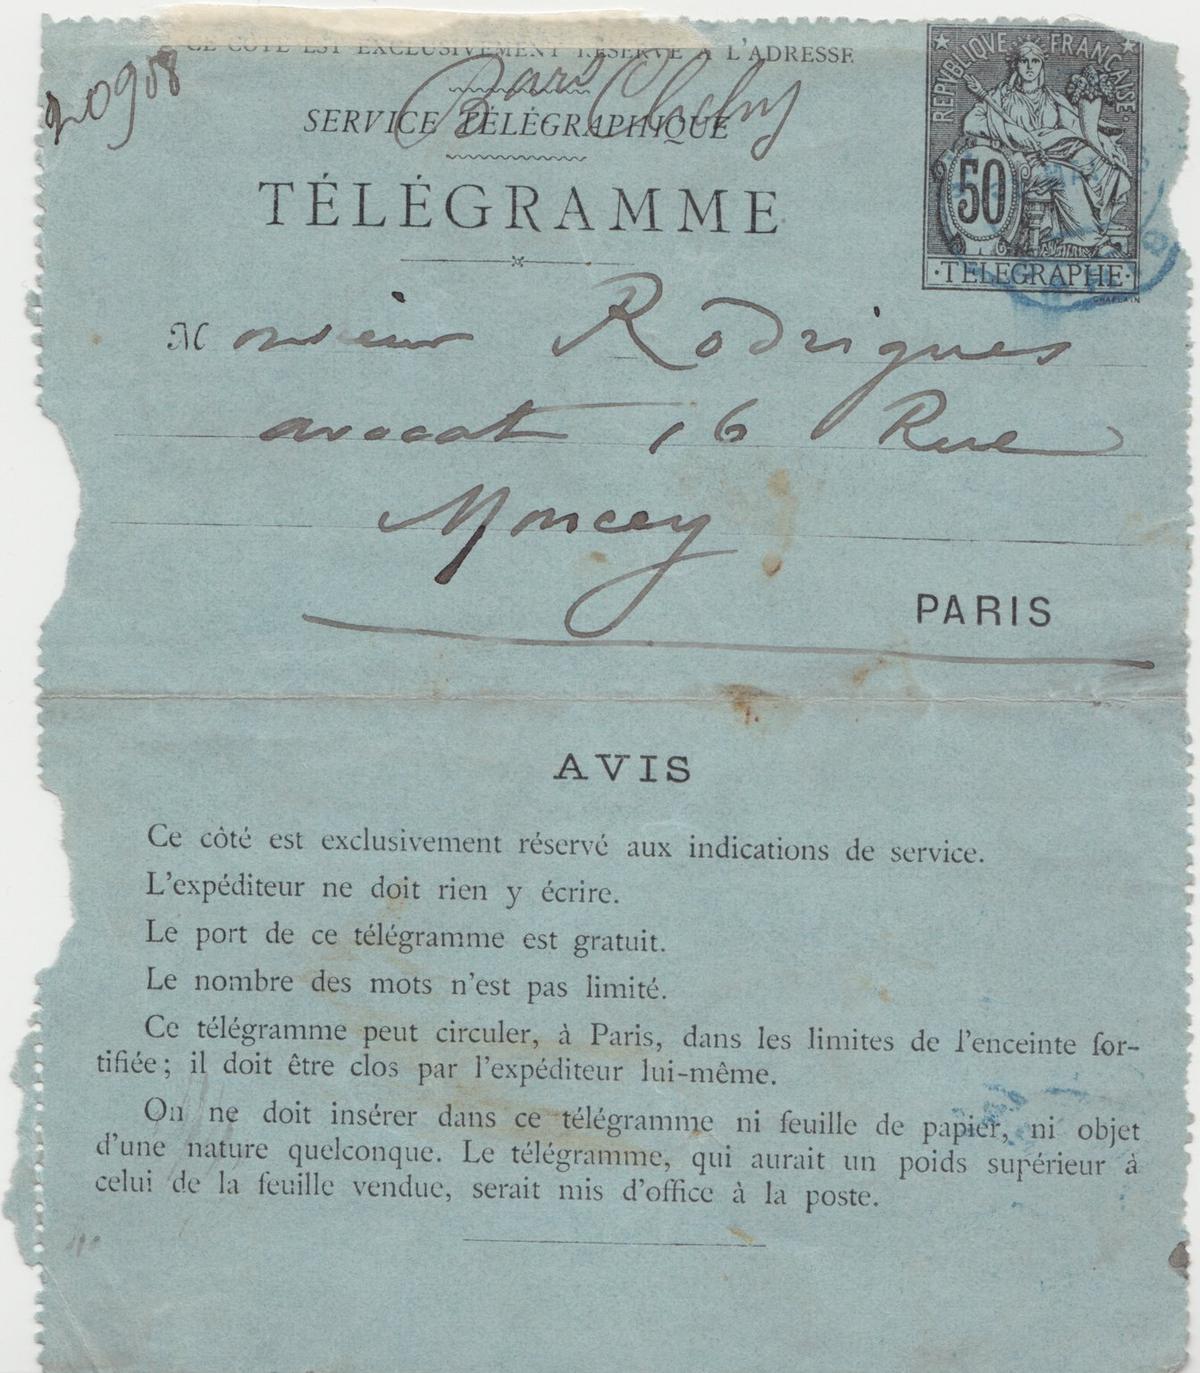 CE CÔTÉ EST EXCLUSIVEMENT RÉSERVÉ A L'ADRESSE
20908
SERVICE TÉLÉGRAPHIQUE
TÉLÉGRAMME
REPVBLIQVE FRANCAISE
50
TELEGRAPHE
CHAPLAIN
Monsieur Rodrigues
avocat 16 Rue
Moncey
PARIS
AVIS
Ce côté est exclusivement réservé aux indications de service.
L'expéditeur ne doit rien y écrire.
Le port de ce télégramme est gratuit.
Le nombre des mots n'est pas limité.
Ce télégramme peut circuler, à Paris, dans les limites de l'enceinte for-
tifiée; il doit être clos par l'expéditeur lui-même.
On ne doit insérer dans ce télégramme ni feuille de papier, ni objet
d'une nature quelconque. Le télégramme, qui aurait un poids supérieur à
celui de la feuille vendue, serait mis d'office à la poste.